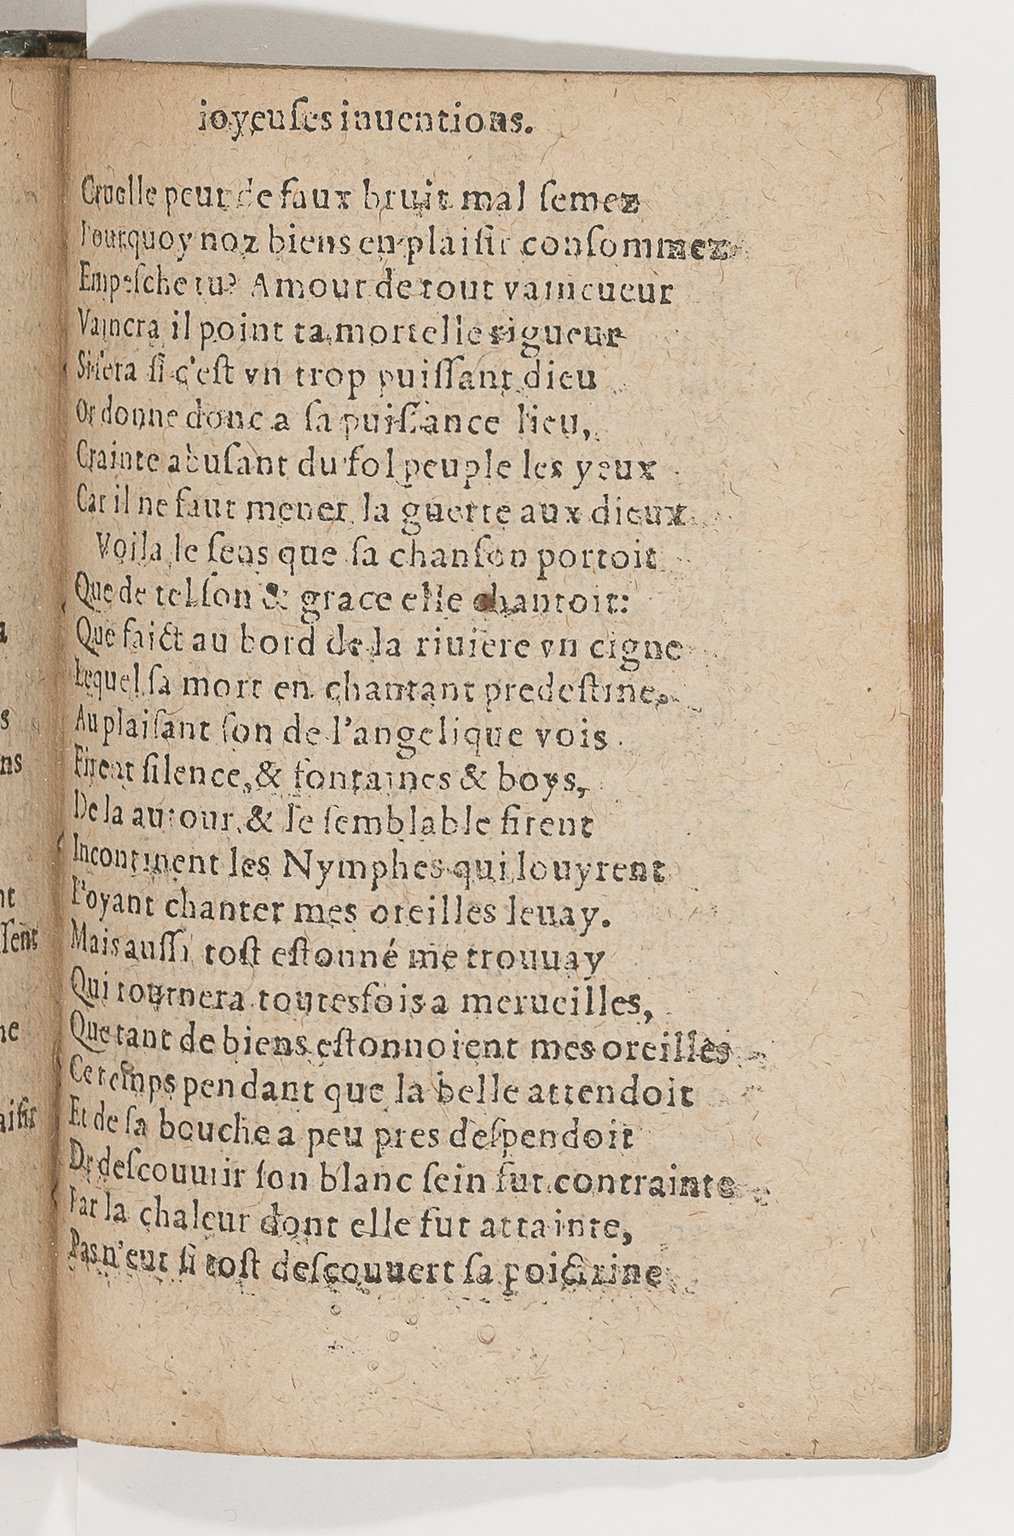 ioyeuſes inuentions.
Cruelle peur de faux bruit mal ſemez
Pourquoy noz biens en plaiſir conſommez
Empeſche tu? Amour de tout vaincueur
Vaincra il point ta mortelle rigueur
Si fera ſi c'eſt vn trop puiſſant dieu
Or donne donc a ſa puiſſance lieu,
Crainte abuſant du fol peuple les yeux
Car il ne faut mener la guerre aux dieux
Voila le ſens que ſa chanſon portoit
Que de tel ſon & grace elle chantoit:
Que faict au bord de la riuiere vn cigne
Lequel ſa mort en chantant predeſtine,
Au plaiſant ſon de l'angelique vois
Firent ſilence, & fontaines & boys,
De la autour, & le ſemblable firent
Incontinent les Nymphes qui louyrent
L'oyant chanter mes oreilles leuay.
Mais auſſi toſt eſtonné me trouuay
Qui tournera toutesfois a merueilles,
Que tant de biens eſtonnoient mes oreilles
Ce temps pendant que la belle attendoit
Et de ſa bouche a peu pres deſpendoit
De deſcouurir ſon blanc ſein fut contrainte
Par la chaleur dont elle fut attainte,
Pas n'eut ſi toſt deſcouuert ſa poictrine
nt
ſent
ne
aiſir
ns